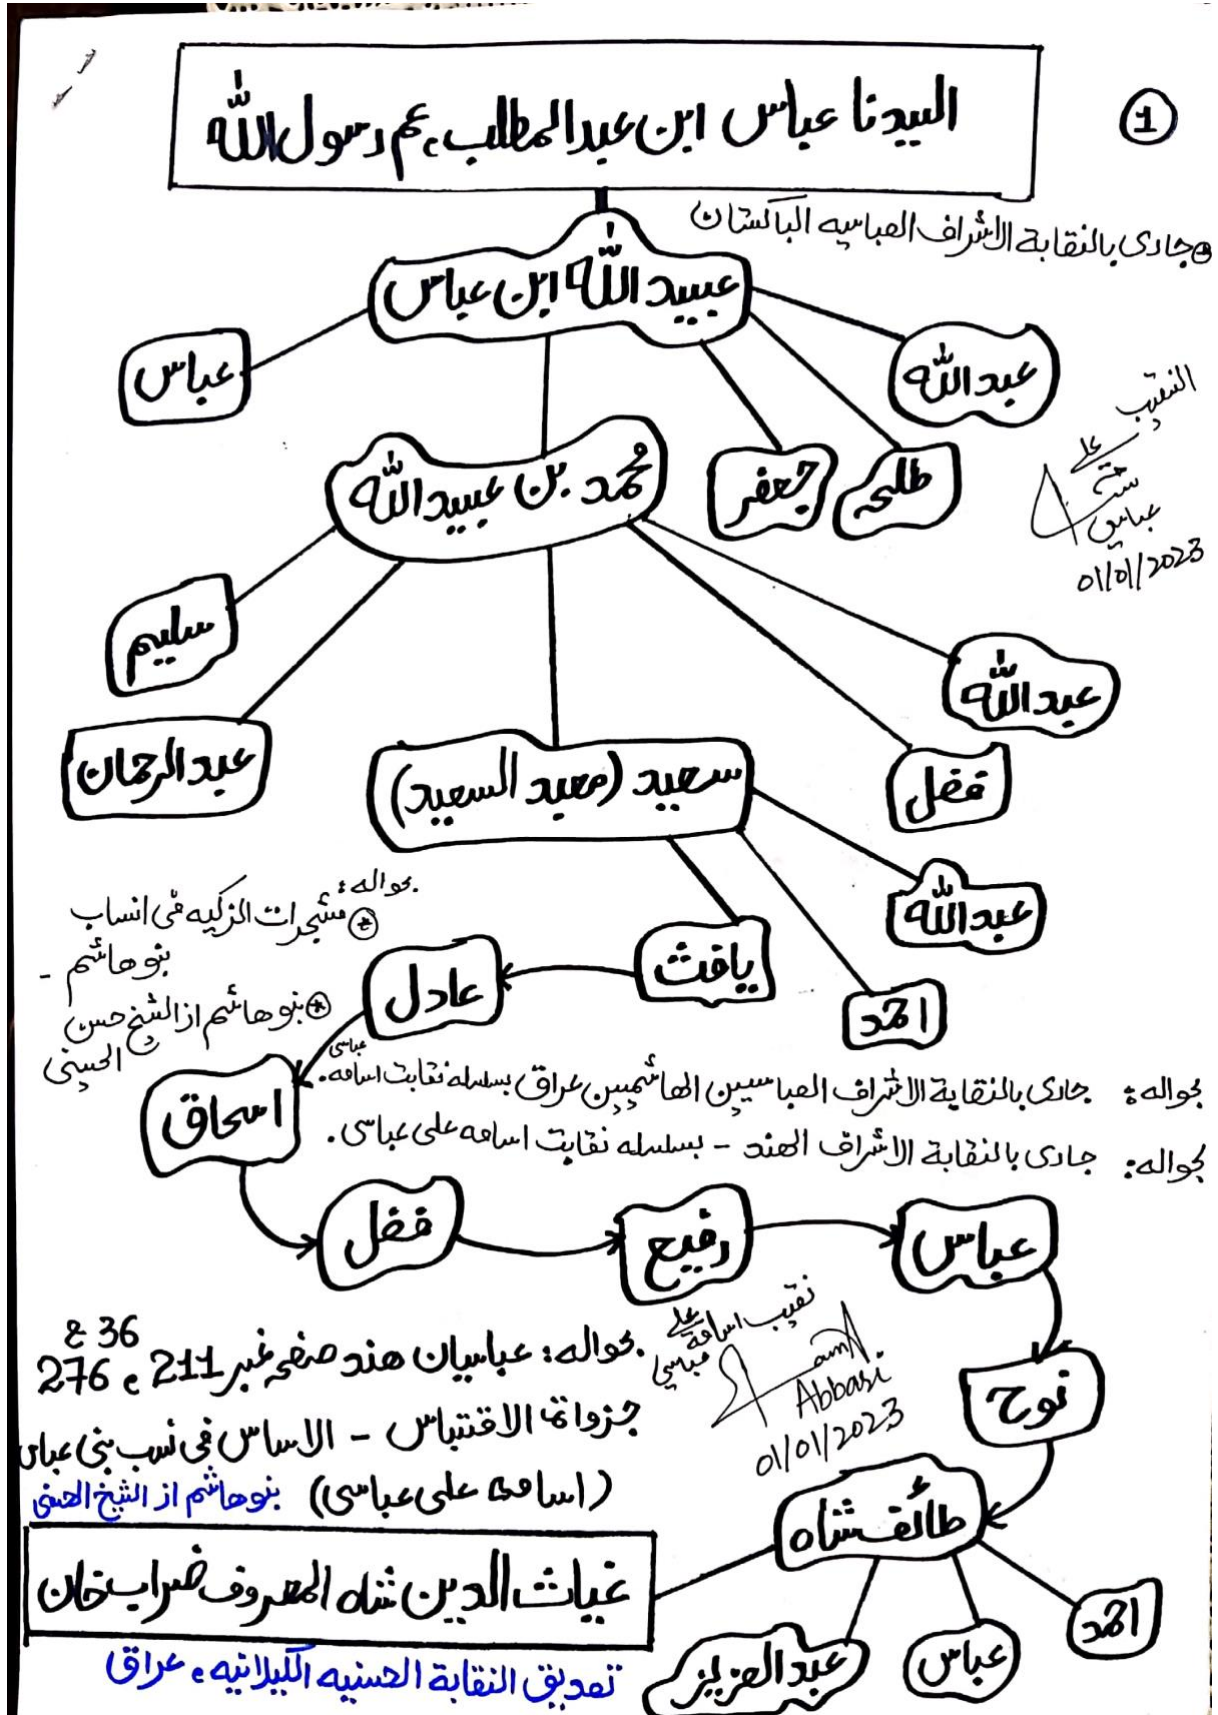 1
السیدنا عباس ابن عبدالمطلب، عم رسول اللّٰہ
جاری بالنقابة الاشراف العباسیہ الباکستان
عبید اللّٰہ ابن عباس
عباس
عبد اللّٰہ
طلحہ
جعفر
النقیب
علی
عباسی
01/01/2023
محمد بن عبید اللّٰہ
سلیم
عبدالرحمان
عبداللّٰہ
فضل
سعید (معبد السعید)
عبداللّٰہ
احمد
یافث
عادل
بحوالہ:
مشجرات الزکیہ فی انساب
بنو ھاشم -
بنو ھاشم از الشیخ حسن
الحسینی
اسحاق
عباسی
بحوالہ: جاری بالنقابة الاشراف العباسیین الھاشمیین عراق بسلسلہ نقابت اسامہ.
بحوالہ: جاری بالنقابة الاشراف الھند - بسلسلہ نقابت اسامہ علی عباسی.
فضل
رفیع
عباس
نوح
نقیب اسامة علی
عباسی
Abbasi
01/01/2023
بحوالہ: عباسیان ھند صفحہ نمبر 211 ، 276 & 36
جزواۃ الاقتباس - الاساس فی نسب بنی عباس
(اسامہ علی عباسی) بنو ھاشم از الشیخ الحسنی
طائف شاہ
احمد
عباس
عبدالعزیز
غیاث الدین شاہ المعروف ضراب خان
تصدیق النقابة الحسنیہ الکیلانیہ ، عراق